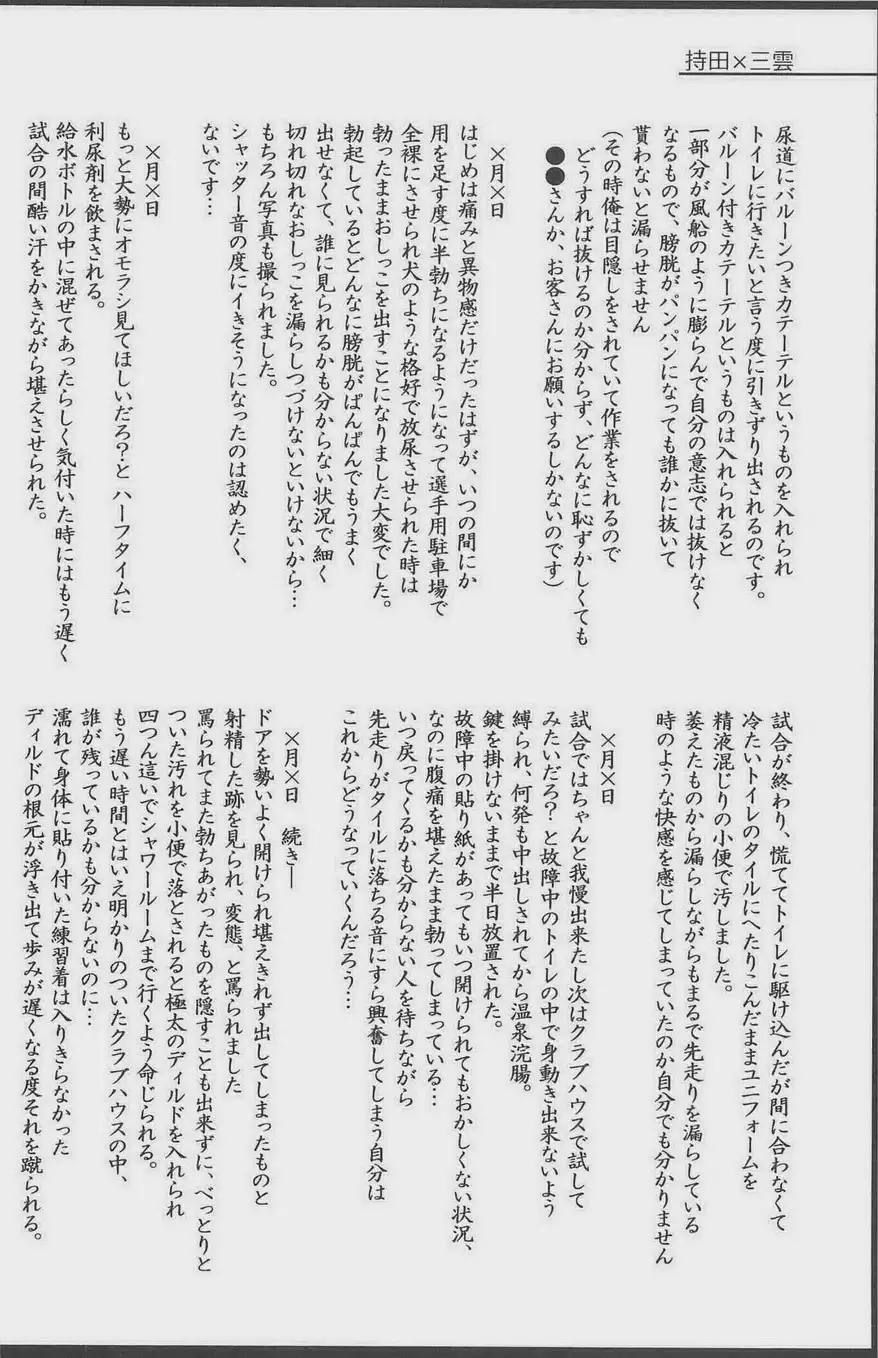 持田×三雲
尿道にバルーンつきカテーテルというものを入れられ
トイレに行きたいと言う度に引きずり出されるのです。
バルーン付きカテーテルというものは入れられると
一部分が風船のように膨らんで自分の意志では抜けなく
なるもので、膀胱がパンパンになっても誰かに抜いて
貰わないと漏らせません
(その時俺は目隠しをされていて作業をされるので
どうすれば抜けるのか分からず、どんなに恥ずかしくても
●●さんか、お客さんにお願いするしかないのです)
×月×日
はじめは痛みと異物感だけだったはずが、いつの間にか
用を足す度に半勃ちになるようになって選手用駐車場で
全裸にさせられ犬のような格好で放尿させられた時は
勃ったままおしっこを出すことになりました大変でした。
勃起しているとどんなに膀胱がぱんぱんでもうまく
出せなくて、誰に見られるかも分からない状況で細く
切れ切れなおしっこを漏らしつづけないといけないから…
もちろん写真も撮られました。
シャッター音の度にイきそうになったのは認めたく、
ないです…
×月×日
もっと大勢にオモラシ見てほしいだろ?と ハーフタイムに
利尿剤を飲まされる。
給水ボトルの中に混ぜてあったらしく気付いた時にはもう遅く
試合の間酷い汗をかきながら堪えさせられた。
試合が終わり、慌ててトイレに駆け込んだが間に合わなくて
冷たいトイレのタイルにへたりこんだままユニフォームを
精液混じりの小便で汚しました。
萎えたものから漏らしながらもまるで先走りを漏らしている
時のような快感を感じてしまっていたのか自分でも分かりません
×月×日
試合ではちゃんと我慢出来たし次はクラブハウスで試して
みたいだろ? と故障中のトイレの中で身動き出来ないよう
縛られ、何発も中出しされてから温泉浣腸。
鍵を掛けないままで半日放置された。
故障中の貼り紙があってもいつ開けられてもおかしくない状況、
なのに腹痛を堪えたまま勃ってしまっている…
いつ戻ってくるかも分からない人を待ちながら
先走りがタイルに落ちる音にすら興奮してしまう自分は
これからどうなっていくんだろう…
×月×日 続き―
ドアを勢いよく開けられ堪えきれず出してしまったものと
射精した跡を見られ、変態、と罵られました
罵られてまた勃ちあがったものを隠すことも出来ずに、べっとりと
ついた汚れを小便で落とされると極太のディルドを入れられ
四つん這いでシャワールームまで行くよう命じられる。
もう遅い時間とはいえ明かりのついたクラブハウスの中、
誰が残っているかも分からないのに…
濡れて身体に貼り付いた練習着は入りきらなかった
ディルドの根元が浮き出て歩みが遅くなる度それを蹴られる。